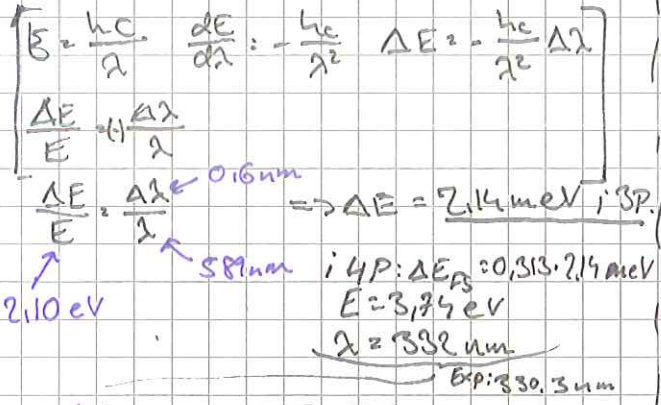 E = hc/λ dE/dλ = -hc/λ² ΔE = -hc/λ² Δλ
ΔE/E = (-) Δλ/λ
ΔE/E = Δλ/λ 0,6 nm => ΔE = 2,14 meV i 3P.
2,10 eV 589 nm i 4P: ΔE_FS = 0,313·2,14 meV
E = 3,74 eV
λ = 332 nm
Exp: 330.3 nm